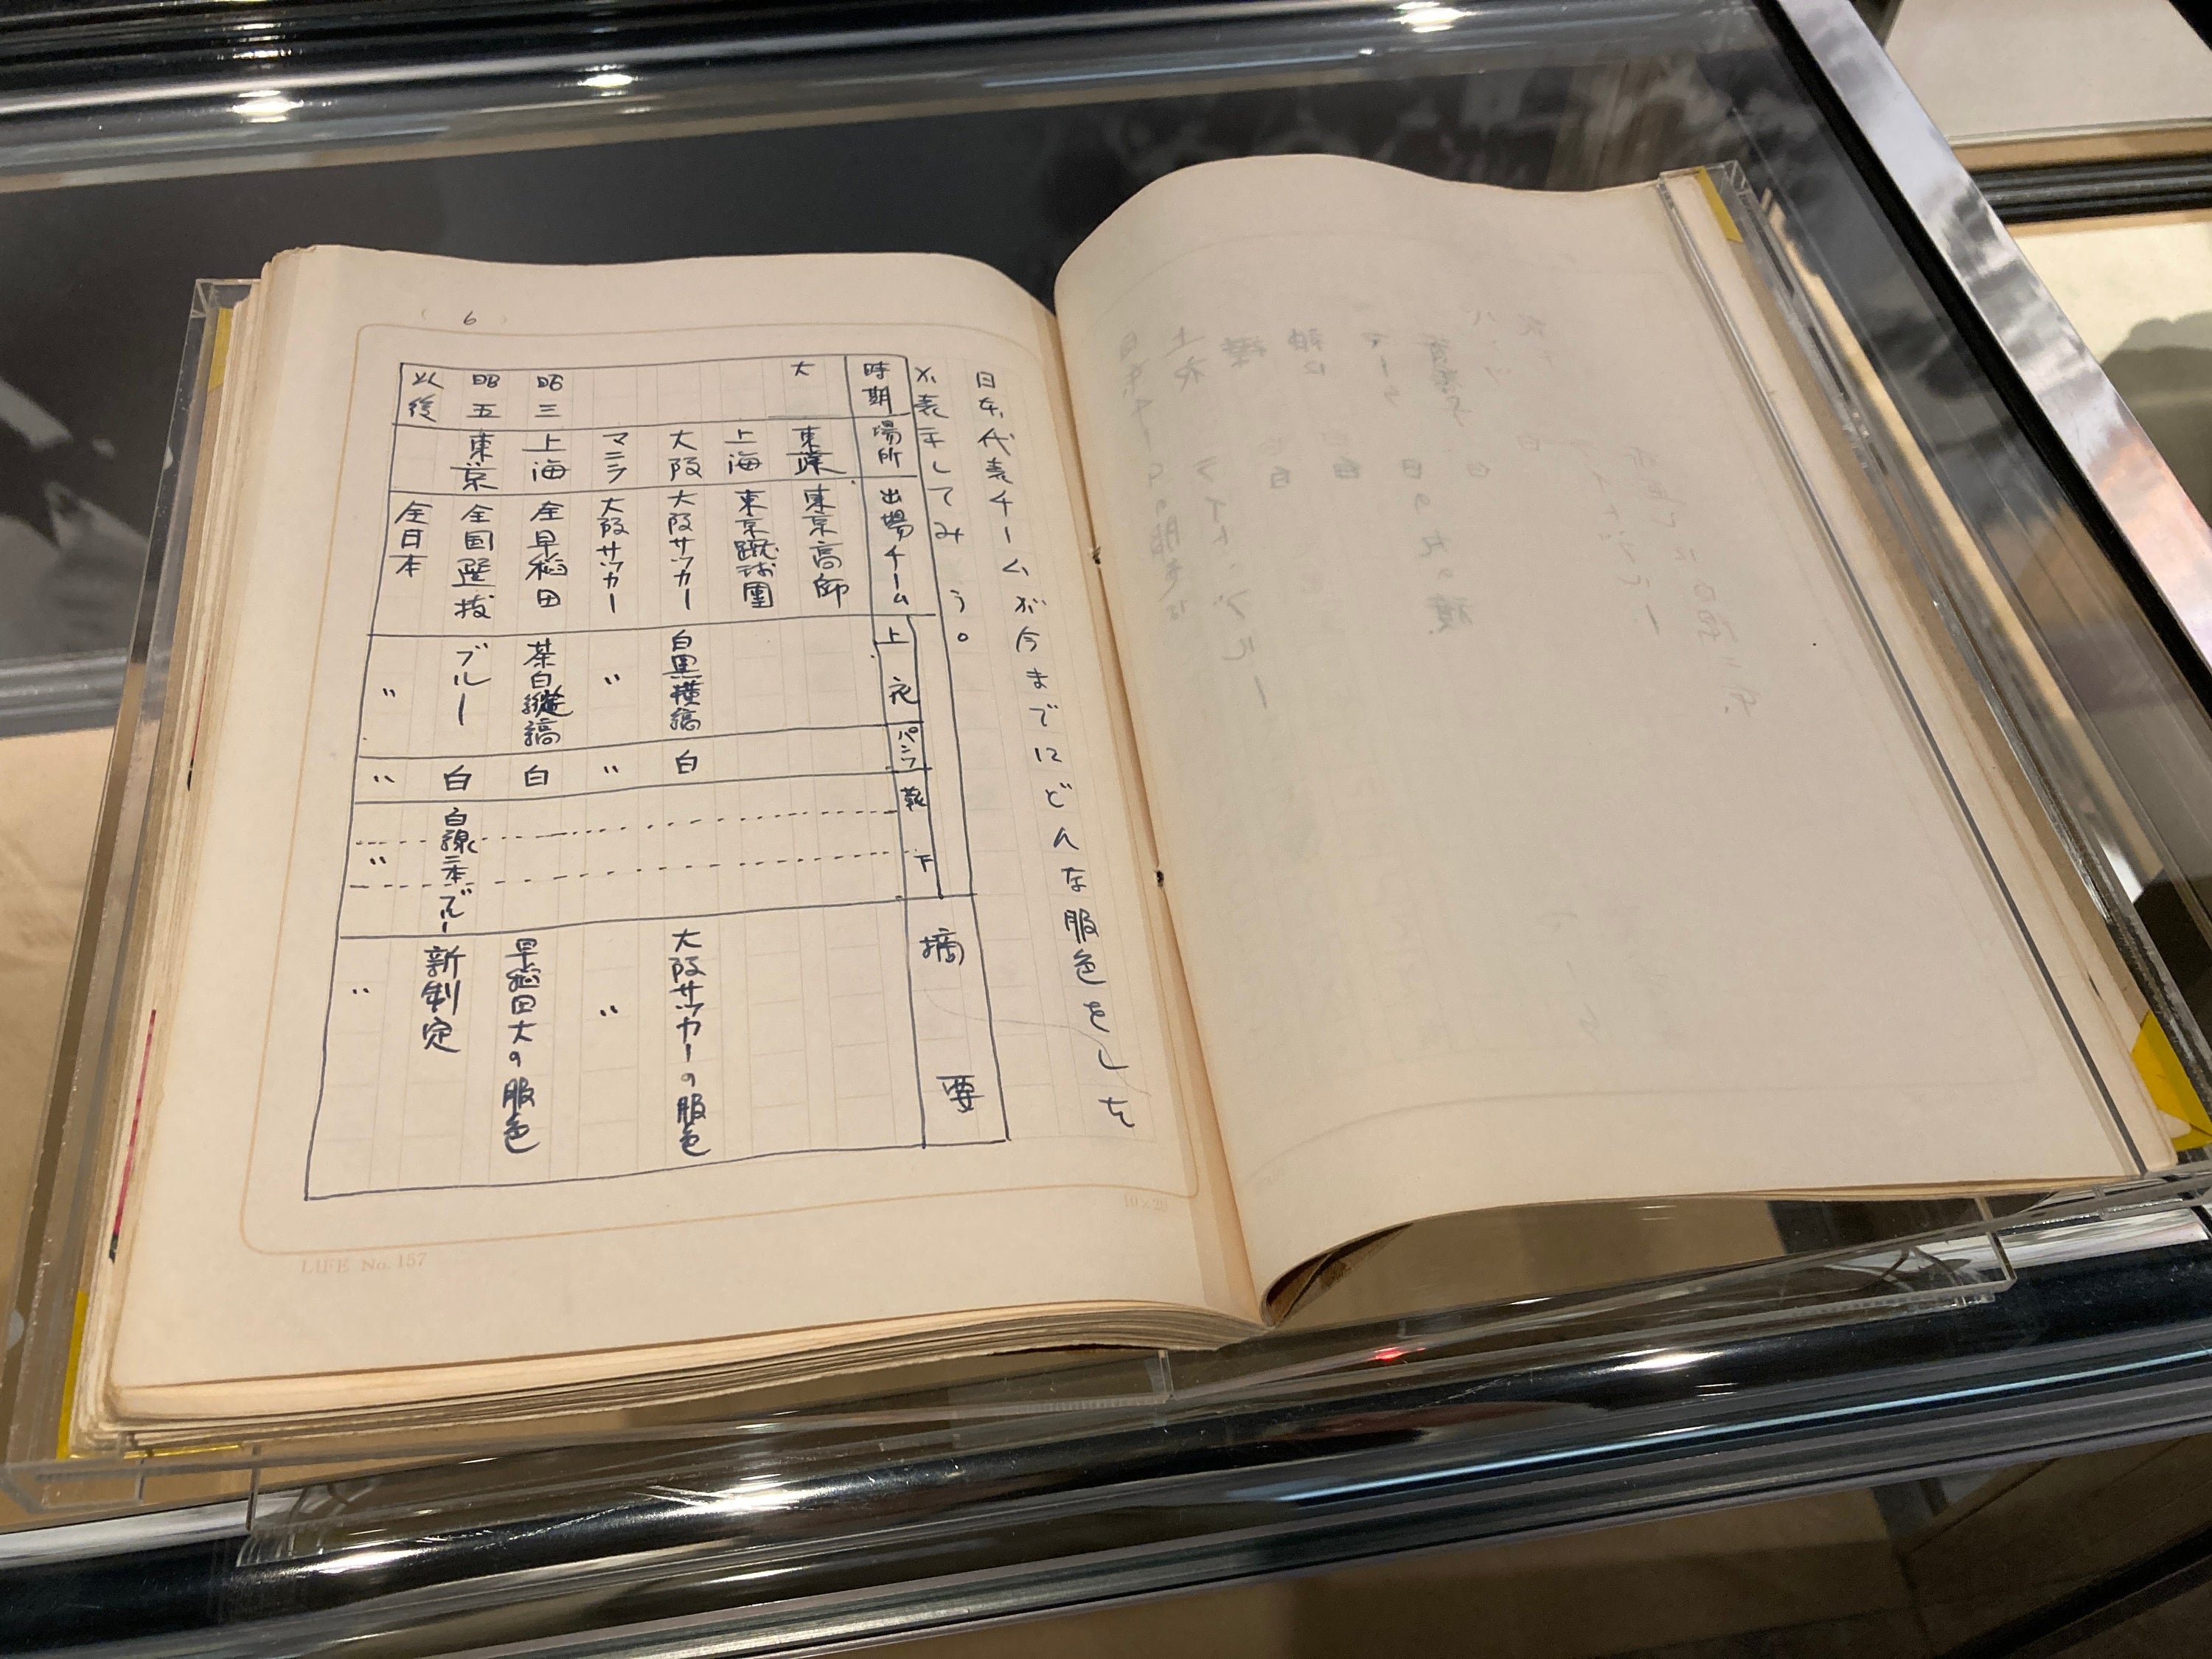 (6)
日本代表チームが今までにどんな服色をしを
か表示してみう。
時期 場所 出場チーム 上衣 パンツ 靴下 摘要
大 東京 東京高師
上海 東京蹴球團
大阪 大阪サッカー 白黒横縞 白 大阪サッカーの服色
マニラ 大阪サッカー 〃 〃 〃
昭三 上海 全早稲田 茶白縦縞 白 早稲田大の服色
昭五 東京 全国選抜 ブルー 白 白線二本ブルー 新制定
以後 全日本 〃 〃 〃 〃
10×20
LIFE No. 157